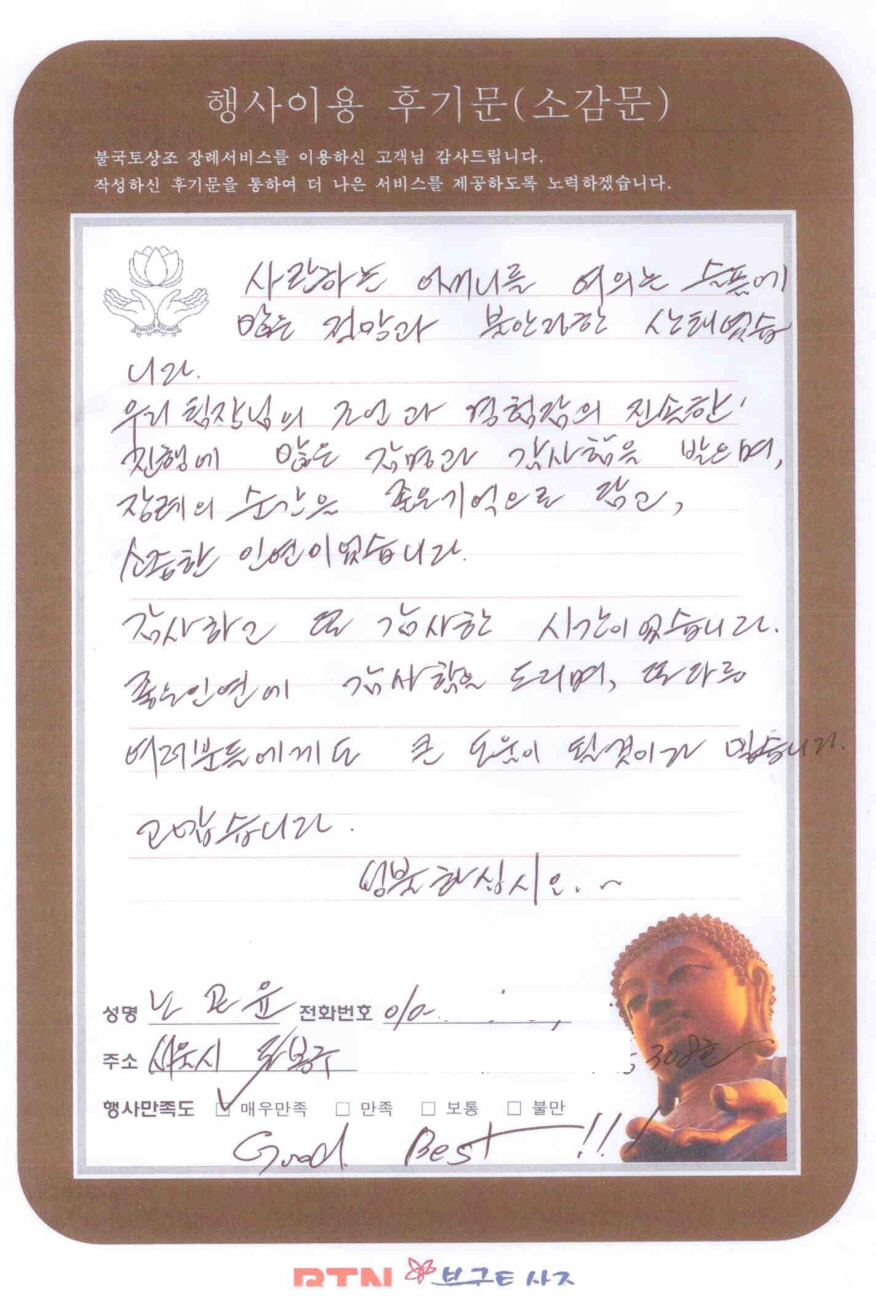 행사이용 후기문(소감문)
불국토상조 장례서비스를 이용하신 고객님 감사드립니다.
작성하신 후기문을 통하여 더 나은 서비스를 제공하도록 노력하겠습니다.
사랑하는 어머니를 여의는 슬픔에
많은 절망과 불안한 상태였습
니다.
우리 팀장님의 조언과 경험감의 진솔한
진행에 많은 감명과 감사함을 받으며,
장례의 순간을 좋은기억으로 담고,
소중한 인연이였습니다.
감사하고 또 감사한 시간이 였습니다.
좋은인연에 감사함을 드리며, 또다른
여러분들에게도 큰 도움이 될것이라 믿습니다.
고맙습니다.
성불하십시오.~
성명 노 윤 전화번호 010-
주소 서울시 도봉구 308호
행사만족도 ☑ 매우만족 □ 만족 □ 보통 □ 불만
Good Best!!!
BTN 불국토상조